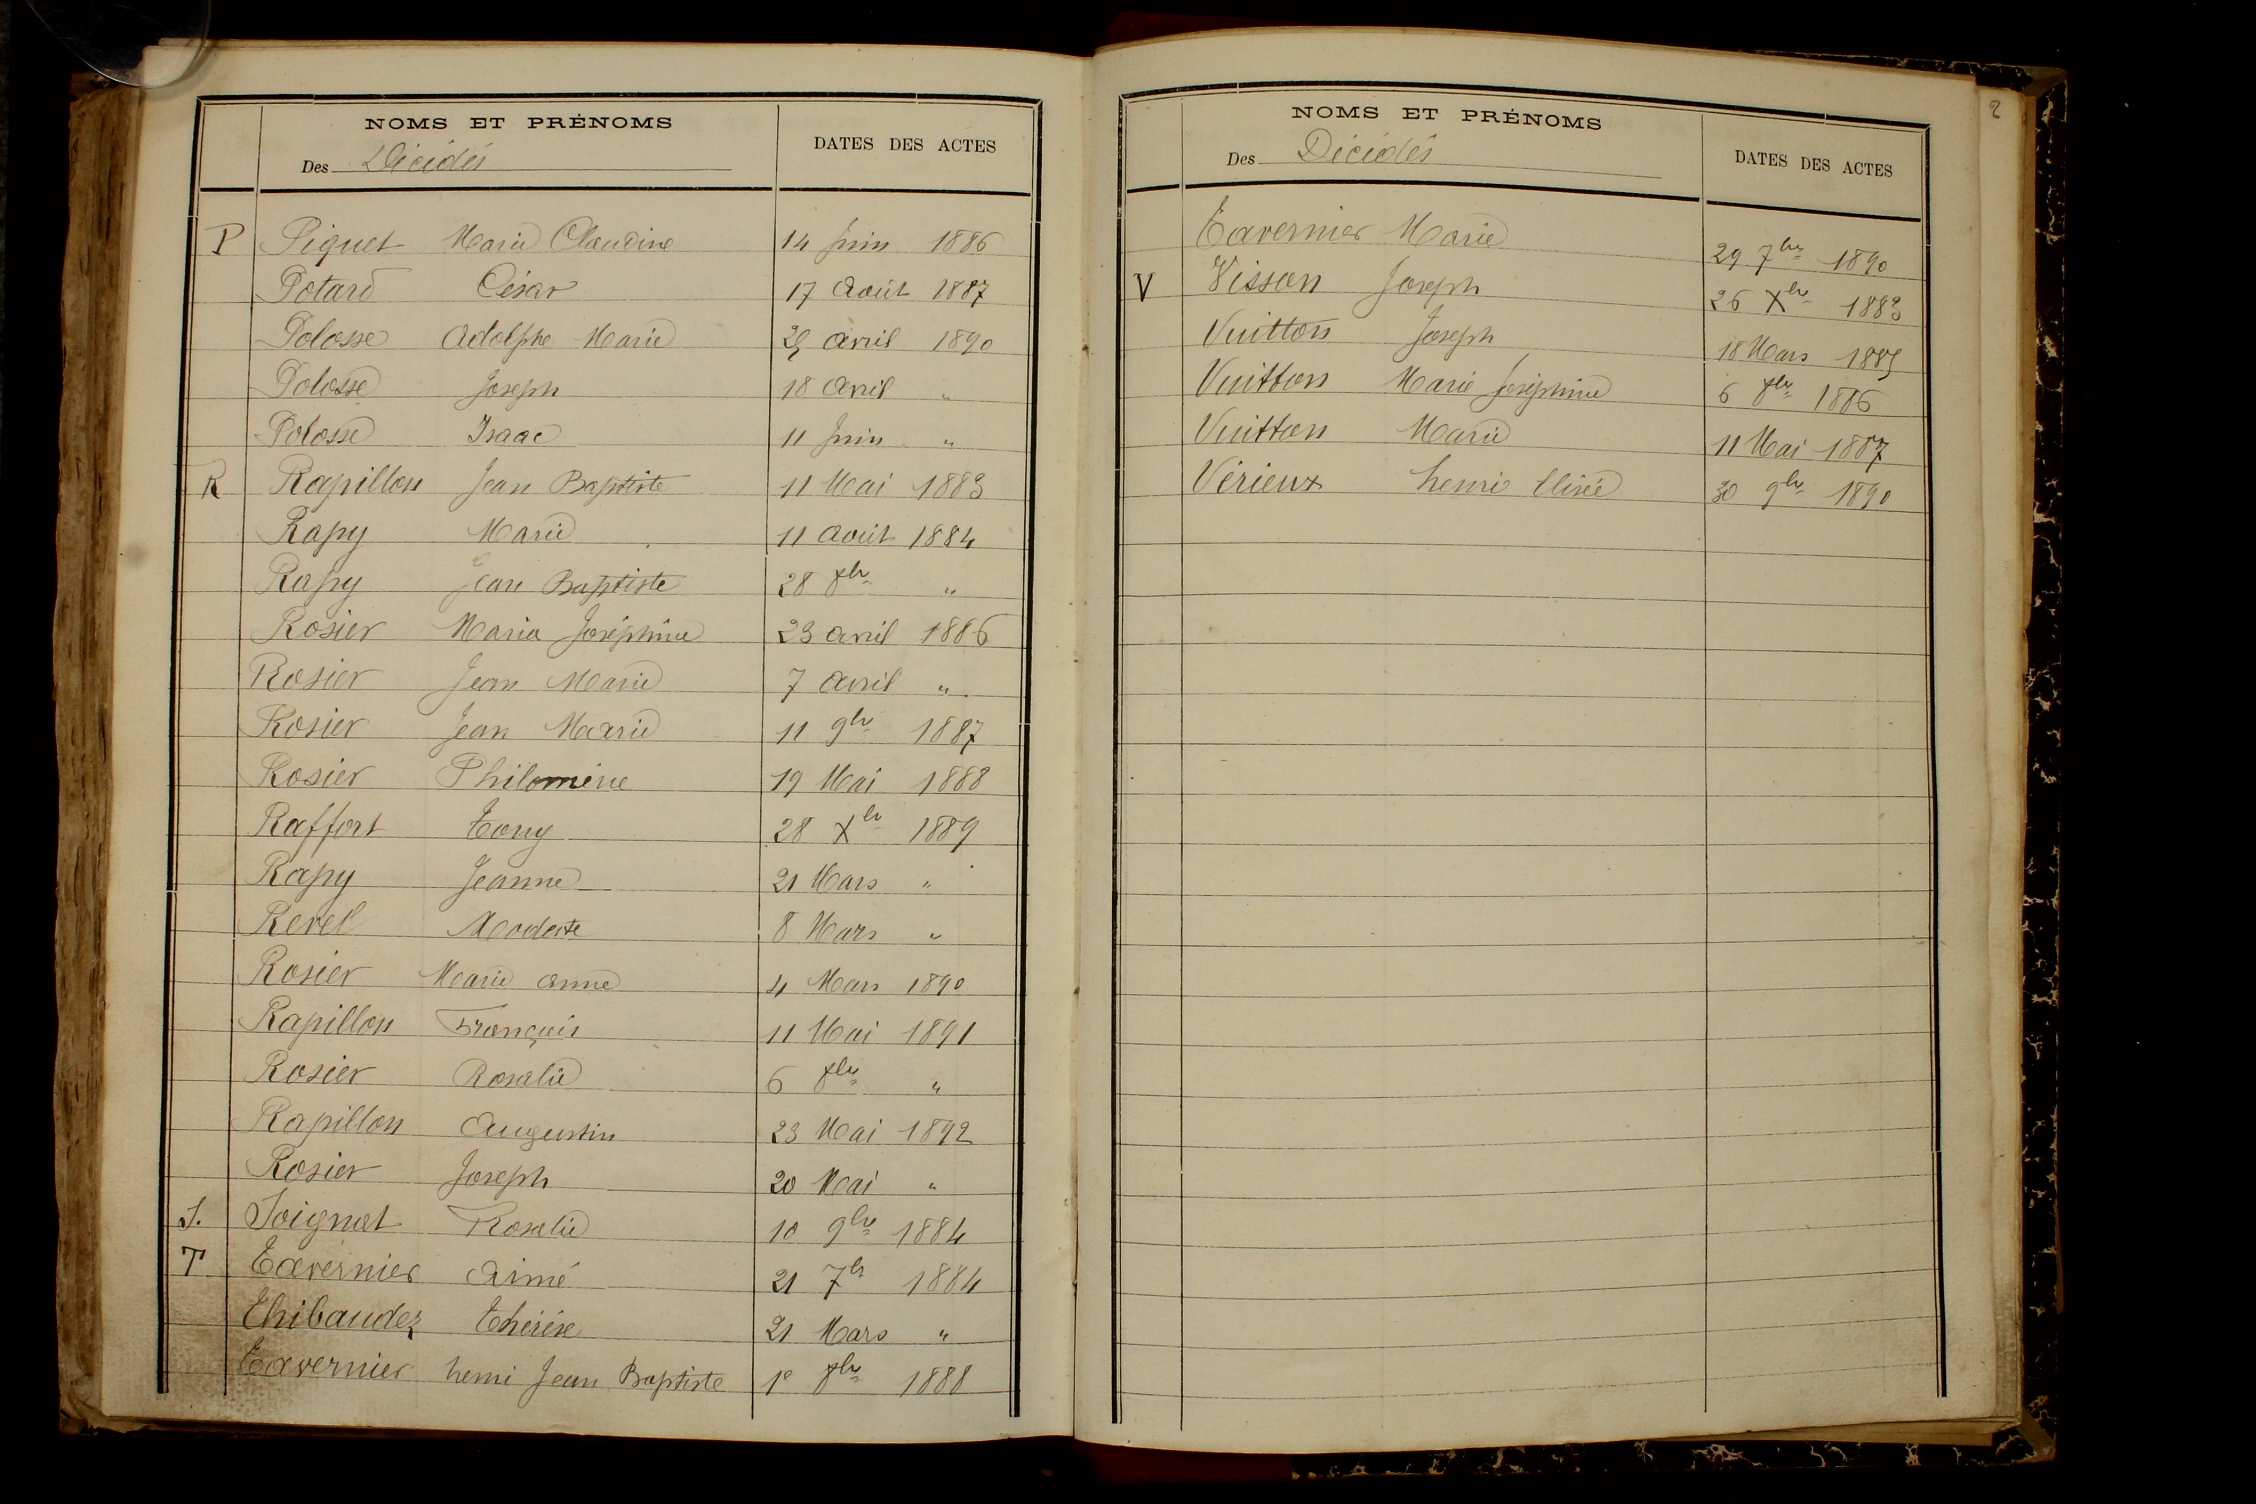 NOMS ET PRÉNOMS
DATES DES ACTES
Des Décédés
P Piquet Marie Claudine 14 Juin 1886
Potard César 17 Août 1887
Polosse Adolphe Marie avril 1890
Polosse Joseph 18 avril "
Polosse Isaac 11 Juin "
R Rapillon Jean Baptiste 11 Mai 1883
Rapy Marie 11 août 1884
Rapy Jean Baptiste 28 8bre "
Rosier Maria Joséphine 23 avril 1886
Rosier Jean Marie 7 avril "
Rosier Jean Marie 11 9bre 1887
Rosier Philomène 19 Mai 1888
Raffort Tony 28 Xbre 1889
Rapy Jeanne 21 Mars "
Revel Modeste 8 Mars "
Rosier Marie anne 4 Mars 1890
Rapillon François 11 Mai 1891
Rosier Rosalie 6 8bre "
Rapillon Augustin 23 Mai 1892
Rosier Joseph 20 Mai "
S. Soignat Rosalie 10 9bre 1884
T Tavernier Aimé 21 7bre 1884
Thibaudez Thérèse 21 Mars "
Tavernier henri Jean Baptiste 1e 8bre 1888
2
NOMS ET PRÉNOMS
DATES DES ACTES
Des Décédés
Tavernier Marie 29 7bre 1890
V Visson Joseph 26 Xbre 1883
Vuitton Joseph 18 Mars 1885
Vuitton Marie Joséphine 6 8bre 1886
Vuitton Marie 11 Mai 1887
Vérieux henri Elisée 30 9bre 1890